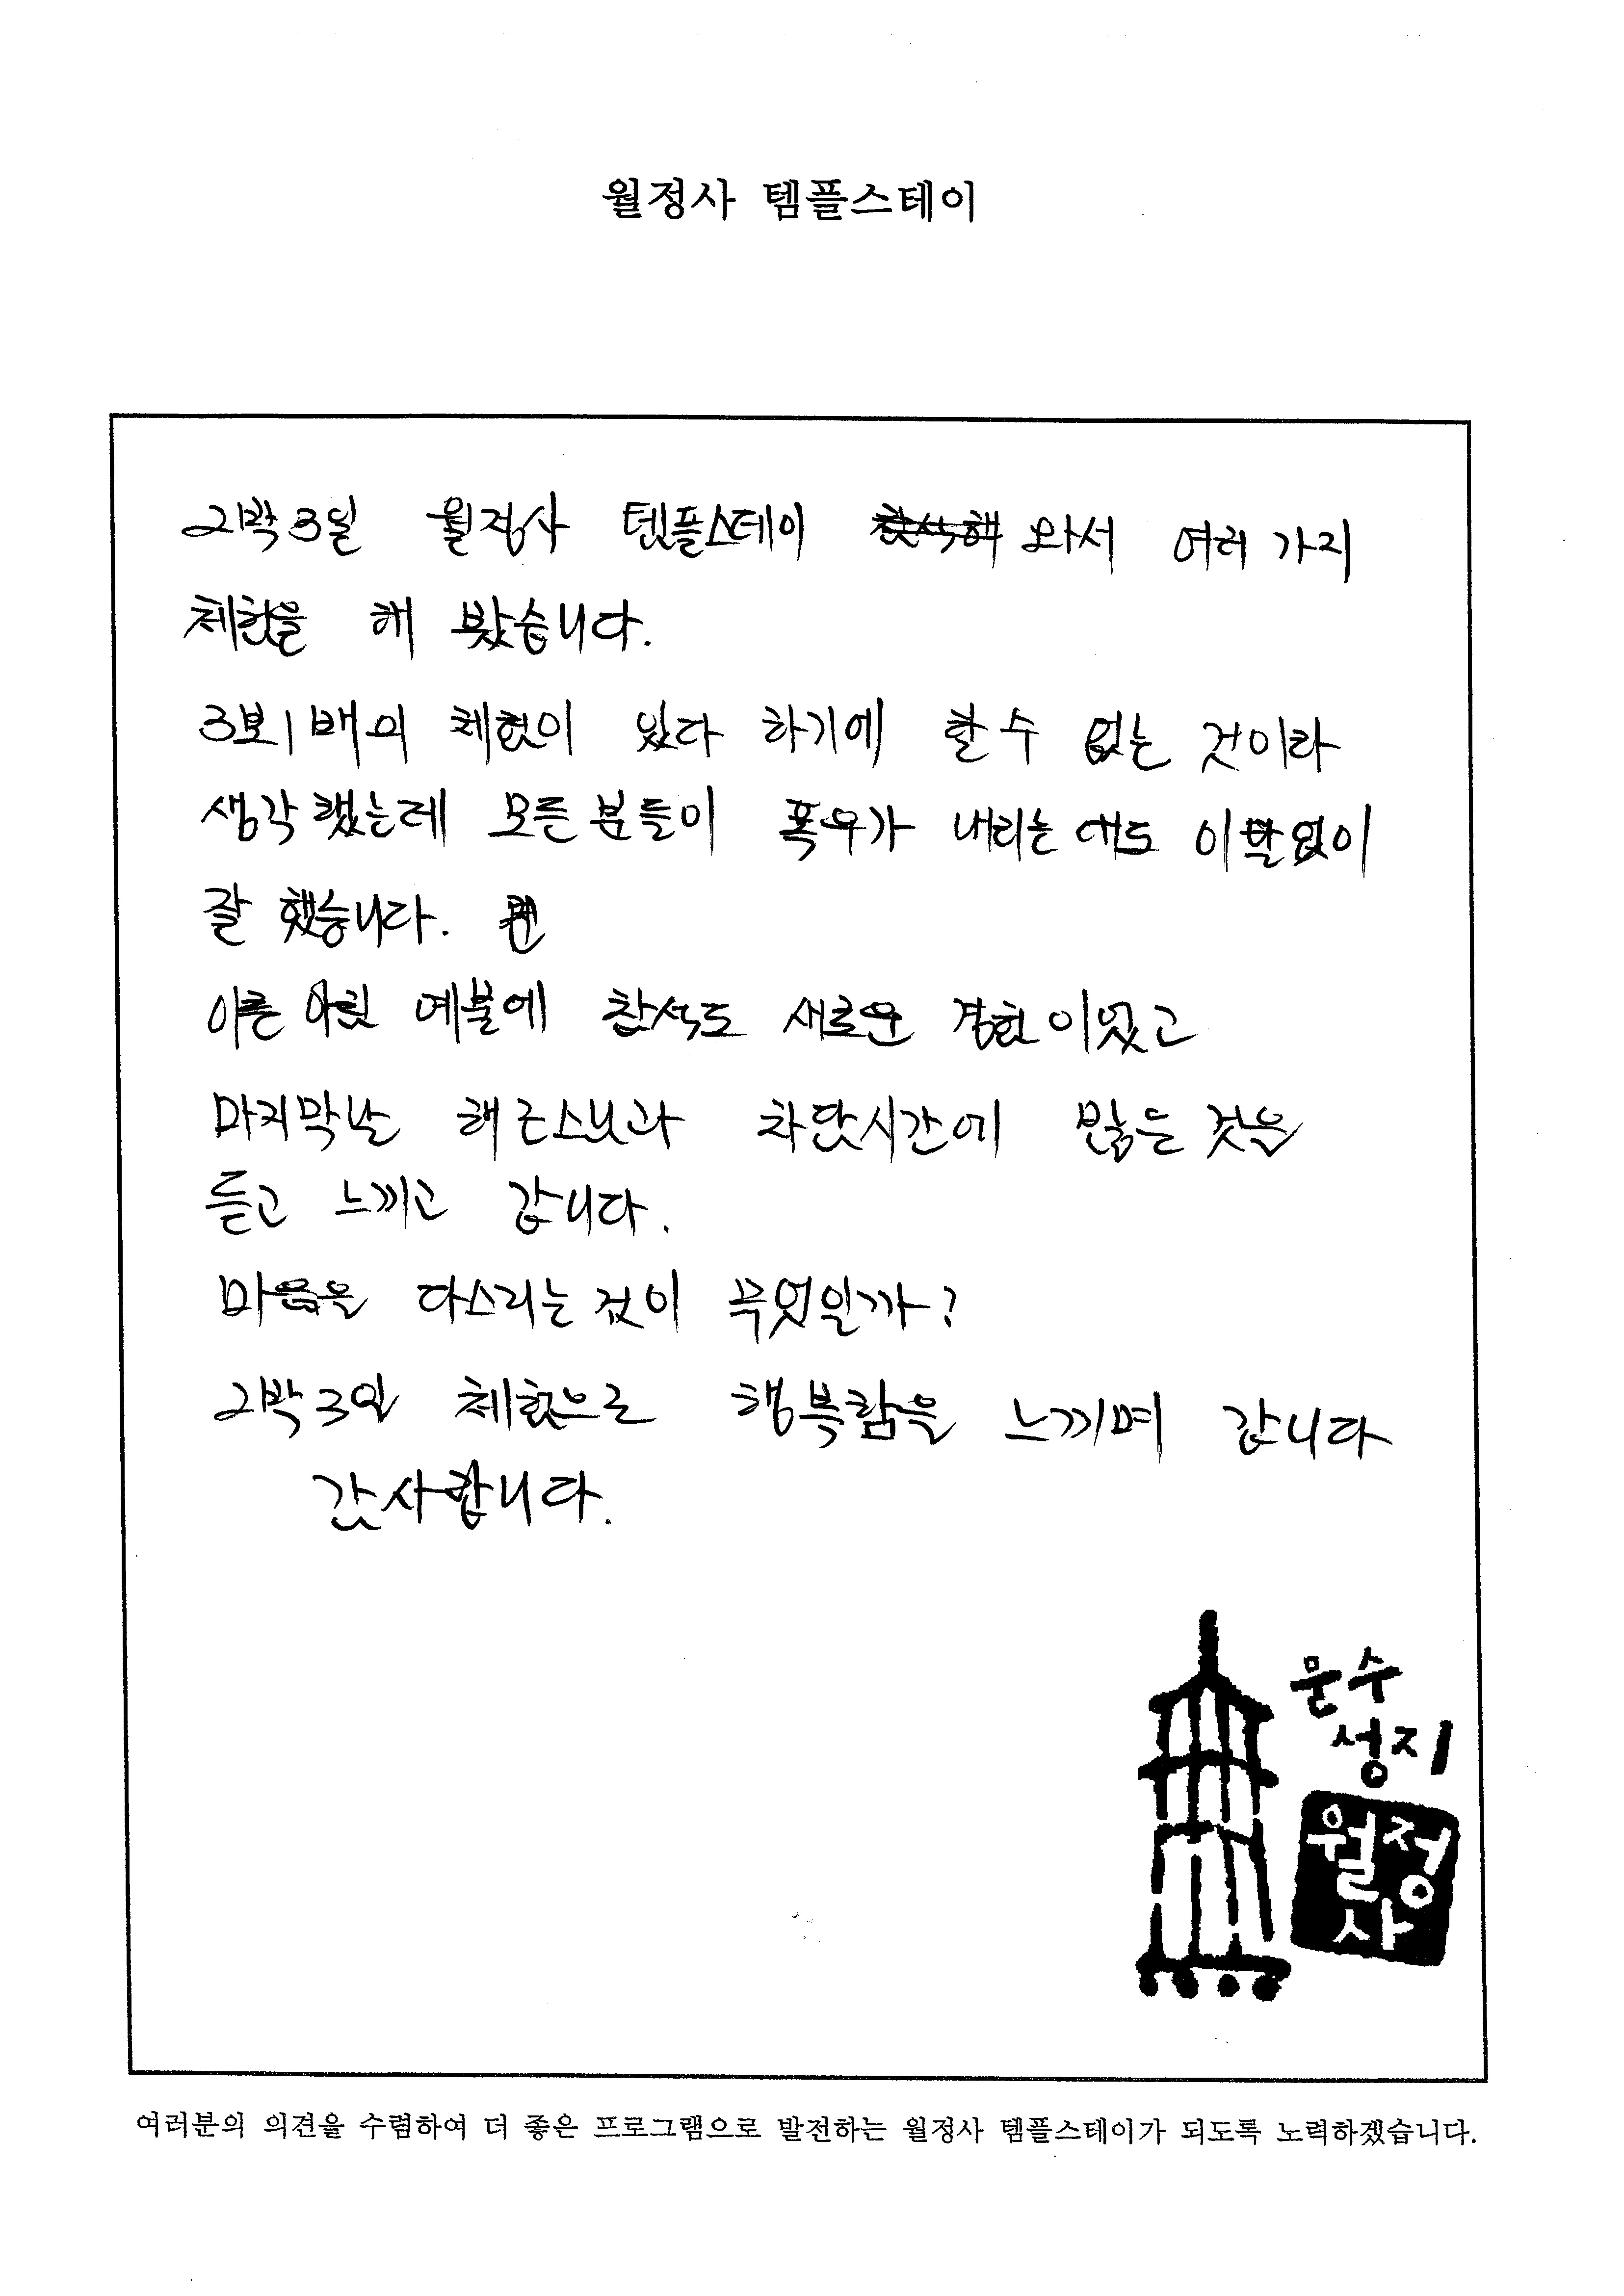 월정사 템플스테이
2박3일 월정사 템플스테이 참석해 와서 여러 가지
체험을 해 봤습니다.
3보1배의 체험이 있다 하기에 할 수 없는 것이라
생각했는데 모든분들이 폭우가 내리는 데도 이탈없이
잘 했습니다.
이른 아침 예불에 참석도 새로운 경험이었고
마지막날 해근스님과 차담시간에 많은 것을
듣고 느끼고 갑니다.
마음을 다스리는 것이 무엇일까?
2박3일 체험으로 행복함을 느끼며 갑니다
감사합니다.
문수
성지
월정
사
여러분의 의견을 수렴하여 더 좋은 프로그램으로 발전하는 월정사 템플스테이가 되도록 노력하겠습니다.